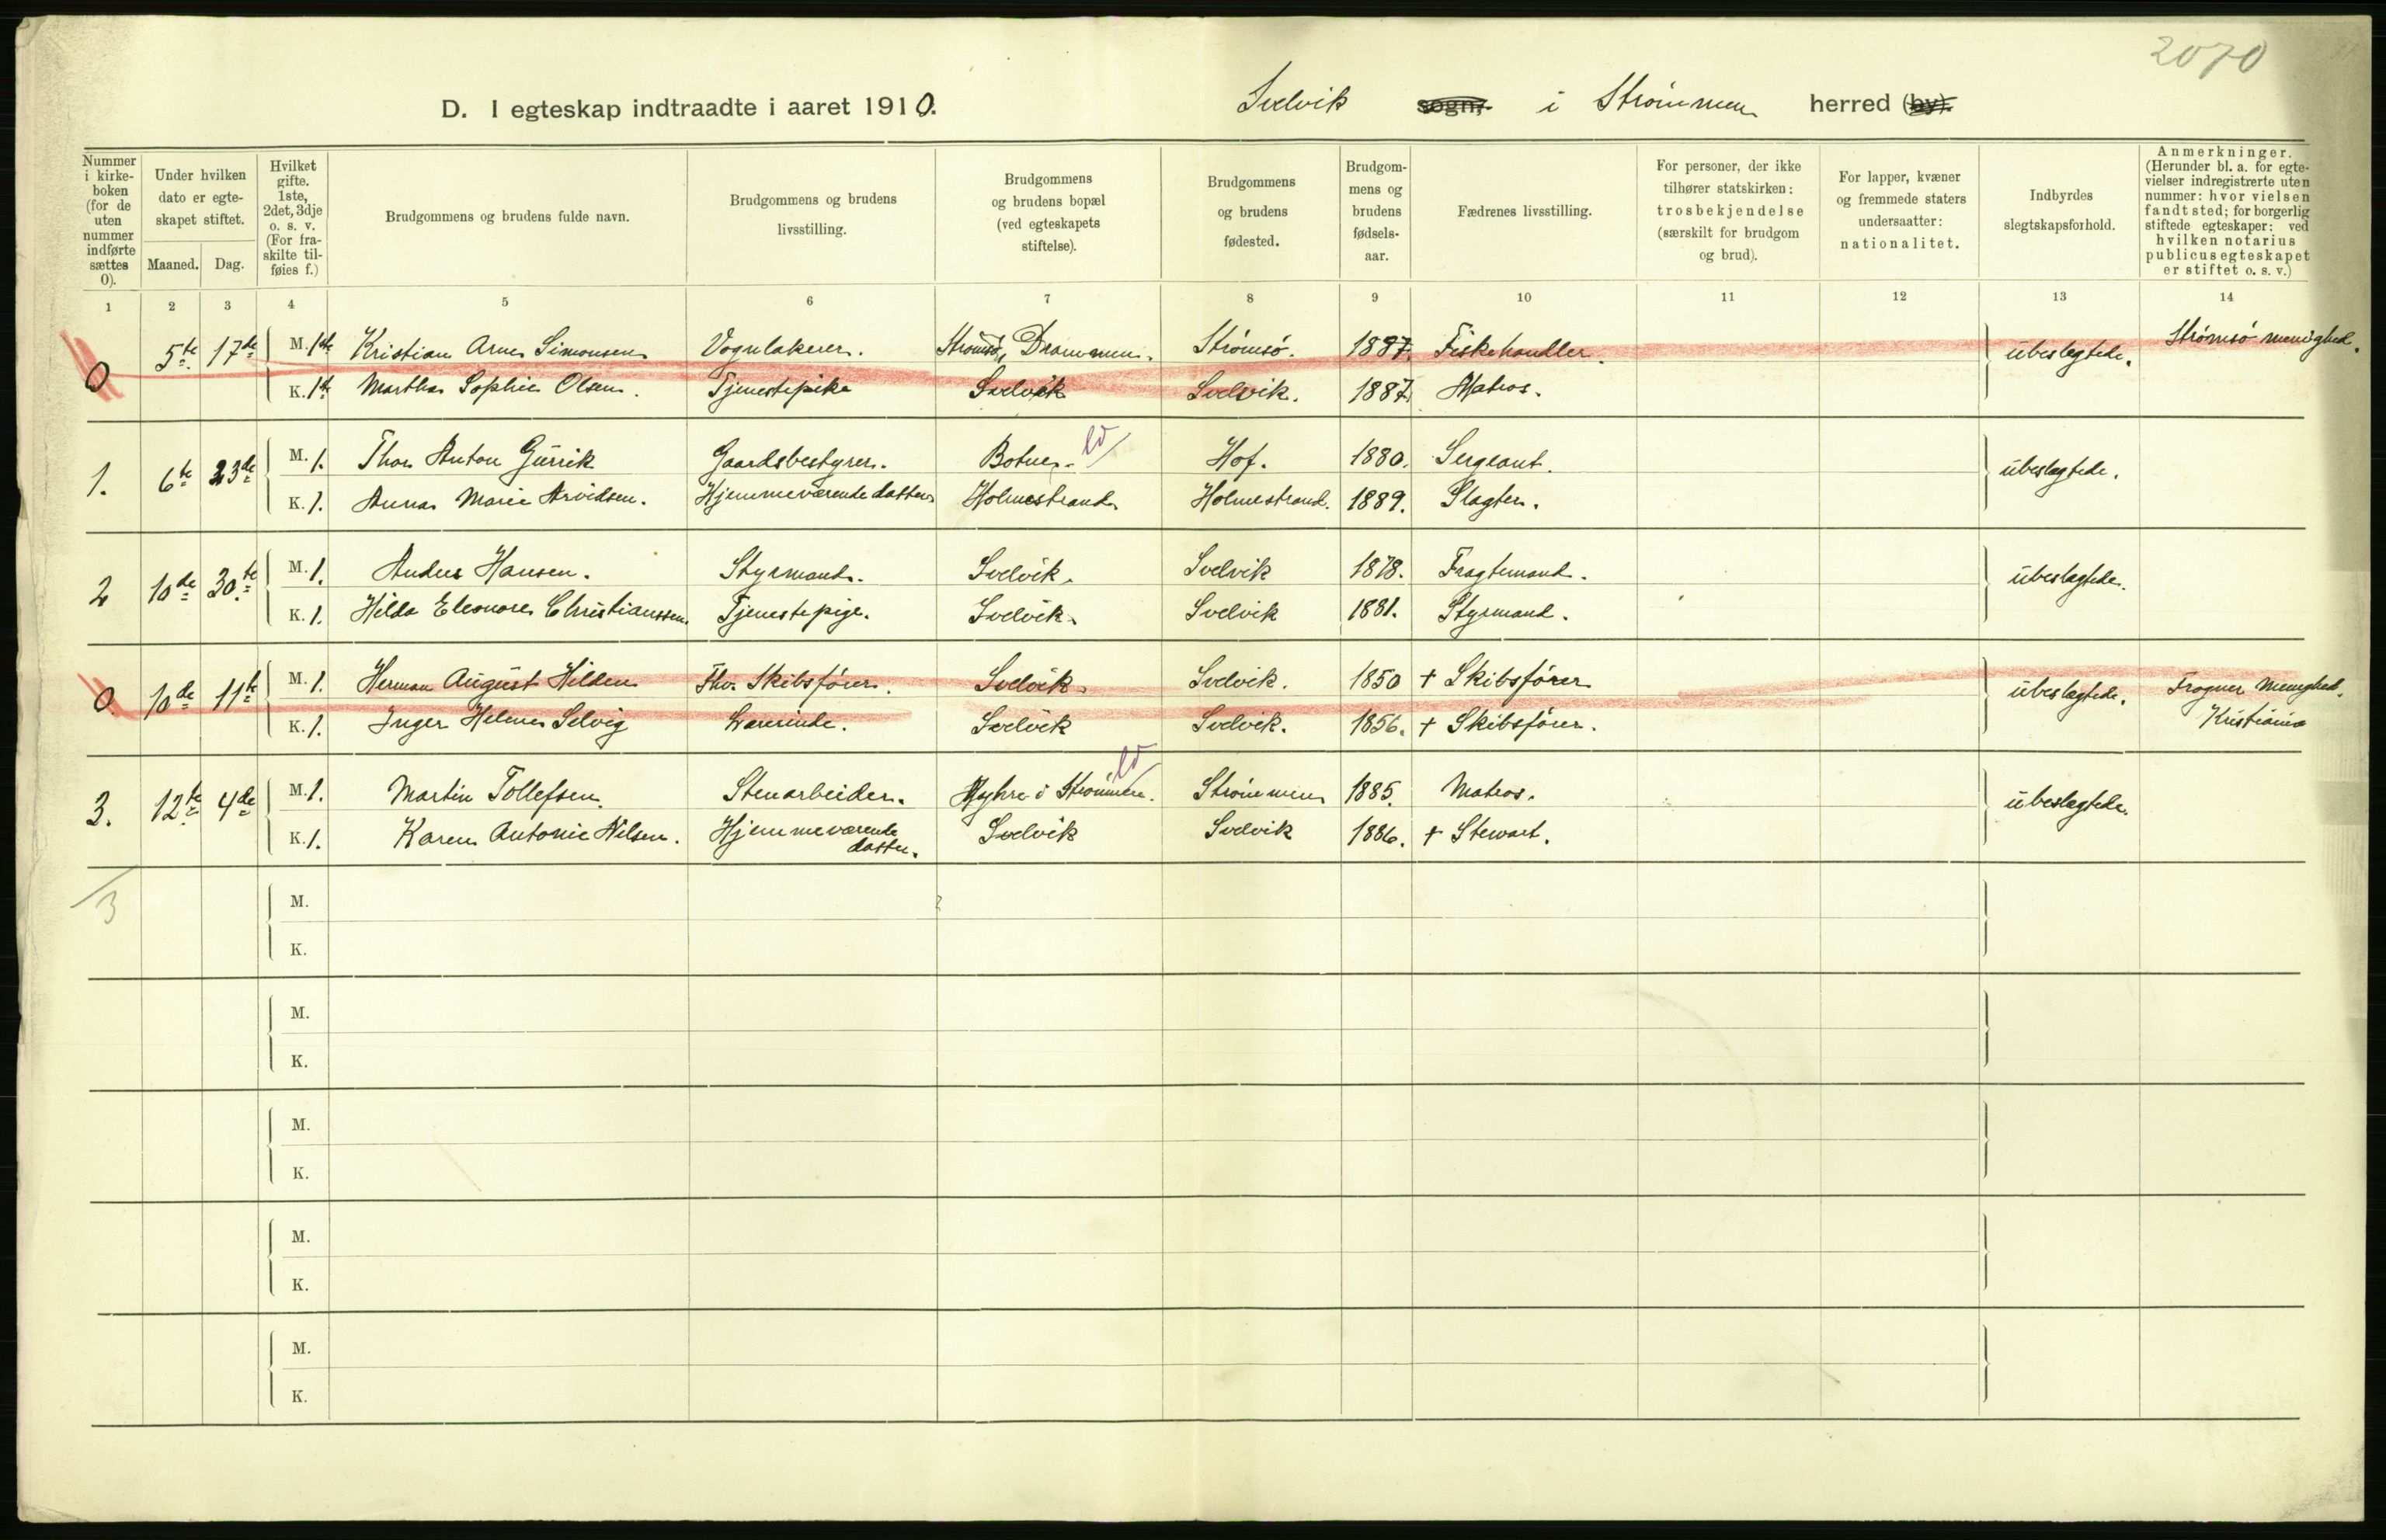 2070
D. I egteskap indtraadte i aaret 1910. Svelvik sogn, i Strømmen herred (by).
Nummer i kirkeboken (for de uten nummer indførte sættes 0).
Under hvilken dato er egteskapet stiftet.
Maaned. Dag.
Hvilket gifte. 1ste, 2det, 3dje o. s. v. (For fraskilte tilføies f.)
Brudgommens og brudens fulde navn.
Brudgommens og brudens livsstilling.
Brudgommens og brudens bopæl (ved egteskapets stiftelse).
Brudgommens og brudens fødested.
Brudgommens og brudens fødselsaar.
Fædrenes livsstilling.
For personer, der ikke tilhører statskirken: trosbekjendelse (særskilt for brudgom og brud).
For lapper, kvæner og fremmede staters undersaatter: nationalitet.
Indbyrdes slegtskapsforhold.
Anmerkninger. (Herunder bl. a. for egtevielser indregistrerte uten nummer: hvor vielsen fandt sted; for borgerlig stiftede egteskaper: ved hvilken notarius publicus egteskapet er stiftet o. s. v.)
1 2 3 4 5 6 7 8 9 10 11 12 13 14
0 5te 17de M. 1ste Kristian Arne Simonsen Vognlakerer. Strømsø, Drammen. Strømsø. 1887. Fiskehandler. ubeslegtede. Strømsø menighed.
K. 1ste Martha Sophie Olsen. Tjenestepike Svelvik Svelvik. 1887. Matros.
1. 6te 23de M. 1. Thor Anton Gurrik Gaardsbestyrer. Botne. Hof. 1880. Sergeant. ubeslegtede.
K. 1. Anna Marie Arvidsen. Hjemmeværende datter Holmestrand Holmestrand. 1889. Slagter.
2 10de 30te M. 1. Anders Hansen. Styrmand. Svelvik. Svelvik 1878. Fragtemand. ubeslegtede.
K. 1. Hilda Eleonore Christianssen. Tjenestepige. Svelvik. Svelvik 1881. Styrmand.
0. 10de 11te M. 1. Herman August Hilden Fhv. Skibsfører. Svelvik. Svelvik. 1850 + Skibsfører ubeslegtede. Frogner Menighed.
Kristiania
K. 1. Inger Helene Selvig Lærerinde. Svelvik Svelvik. 1856. + Skibsfører.
3. 12te 4de M. 1. Martin Tollefsen. Stenarbeider. Nyhre i Strømmen. Strømmen 1885. Matros. ubeslegtede.
K. 1. Karen Antonie Nilsen. Hjemmeværende datter. Svelvik Svelvik 1886. + Stewart.
3
M.
K.
M.
K.
M.
K.
M.
K.
M.
K.